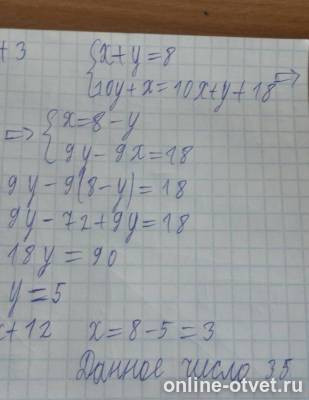 +3 { x+y=8
10y+x=10x+y+18 =>
=> { x=8-y
9y-9x=18
9y-9(8-y)=18
9y-72+9y=18
18y=90
y=5
x+12 x=8-5=3
Данное число 35
online-otvet.ru